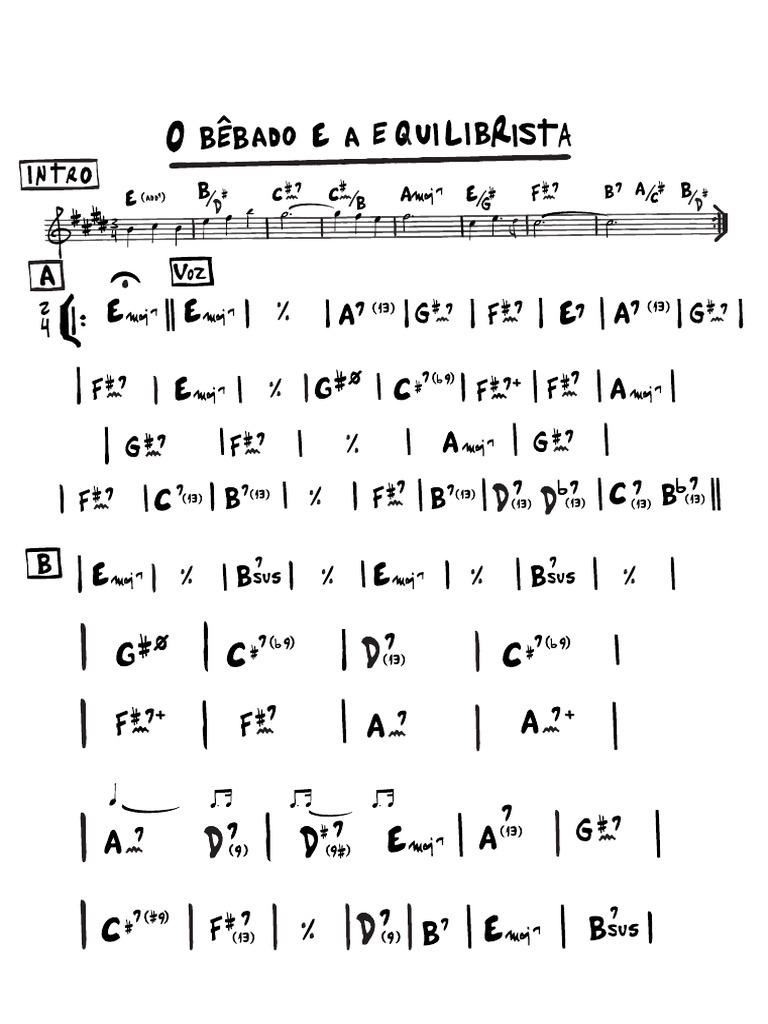 O BÊBADO E A EQUILIBRISTA
INTRO
E (ADD9) B/D# C#m7 C#m/B Amaj7 E/G# F#m7 B7 A/C# B/D#
3/4
A VOZ
2/4 |: Emaj7 || Emaj7 | ٪ | A7(13) | G#m7 | F#m7 | E7 | A7(13) | G#m7 |
| F#m7 | Emaj7 | ٪ | G#ø | C#7(b9) | F#m7+ | F#m7 | Amaj7 |
| G#m7 | F#m7 | ٪ | Amaj7 | G#m7 |
| F#m7 | C7(13) | B7(13) | ٪ | F#m7 | B7(13) | D7(13) Db7(13) | C7(13) Bb7(13) ||
B | Emaj7 | ٪ | B7sus | ٪ | Emaj7 | ٪ | B7sus | ٪ |
| G#ø | C#7(b9) | D7(13) | C#7(b9) |
| F#m7+ | F#m7 | Am7 | Am7+ |
| Am7 D7(9) | D#7(9#) Emaj7 | A7(13) | G#m7 |
| C#7(#9) | F#7(13) | ٪ | D7(9) | B7 | Emaj7 | B7sus |